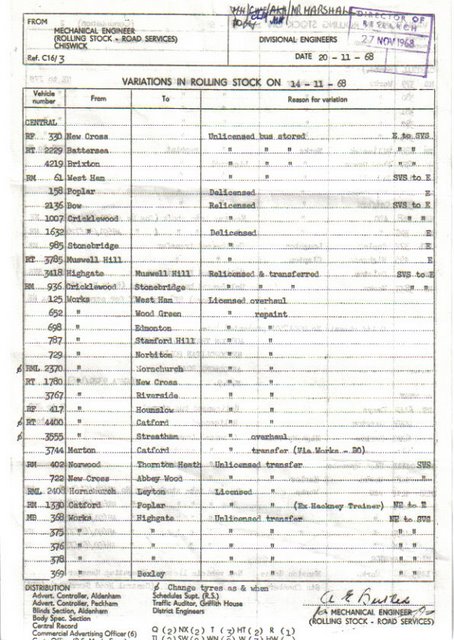 FROM
MECHANICAL ENGINEER
(ROLLING STOCK - ROAD SERVICES)
CHISWICK
Ref. C16/3
MR MARSHALL
DIVISIONAL ENGINEERS
DATE 20-11-68
DIRECTOR OF
RESEARCH
27 NOV 1968
VARIATIONS IN ROLLING STOCK ON 14-11-68
Vehicle number From To Reason for variation
CENTRAL
RF 330 New Cross Unlicensed bus stored E to SVS
RT 2229 Battersea " " " " "
4219 Brixton " " " " "
RM 61 West Ham SVS to E
158 Poplar Delicensed E
2136 Bow Relicensed SVS to E
1007 Cricklewood " " "
1632 " Delicensed E
985 Stonebridge " E
RT 3785 Muswell Hill " E
3418 Highgate Muswell Hill Relicensed & transferred SVS to E
RM 936 Cricklewood Stonebridge " " "
125 Works West Ham Licensed overhaul
652 " Wood Green " repaint
698 " Edmonton " "
787 " Stamford Hill " "
729 " Norbiton " "
ø RML 2370 " Hornchurch " "
RT 1780 " New Cross " "
3767 " Riverside " "
RF 417 " Hounslow " "
ø RT 4400 " Catford " "
ø 3555 " Streatham " overhaul
3744 Merton Catford " transfer (Via Works - BO)
RM 402 Norwood Thornton Heath Unlicensed transfer SVS
722 New Cross Abbey Wood " " "
RML 2408 Hornchurch Leyton Licensed "
RM 1330 Catford Poplar " " (Ex Hackney Trainer) NE to E
MB 368 Works Highgate Unlicensed transfer NE to SVS
375 " " " " " "
376 " " " " " "
378 " " " " " "
369 " Bexley " " " "
DISTRIBUTION
ø Change tyres as & when
Advert. Controller, Aldenham
Advert. Controller, Peckham
Blinds Section, Aldenham
Body Spec. Section
Central Record
Commercial Advertising Officer (6)
Schedules Supt. (R.S.)
Traffic Auditor, Griffith House
District Engineers
MECHANICAL ENGINEER
(ROLLING STOCK - ROAD SERVICES)
Q (2) NX (2) T (3) HT (2) R (1)